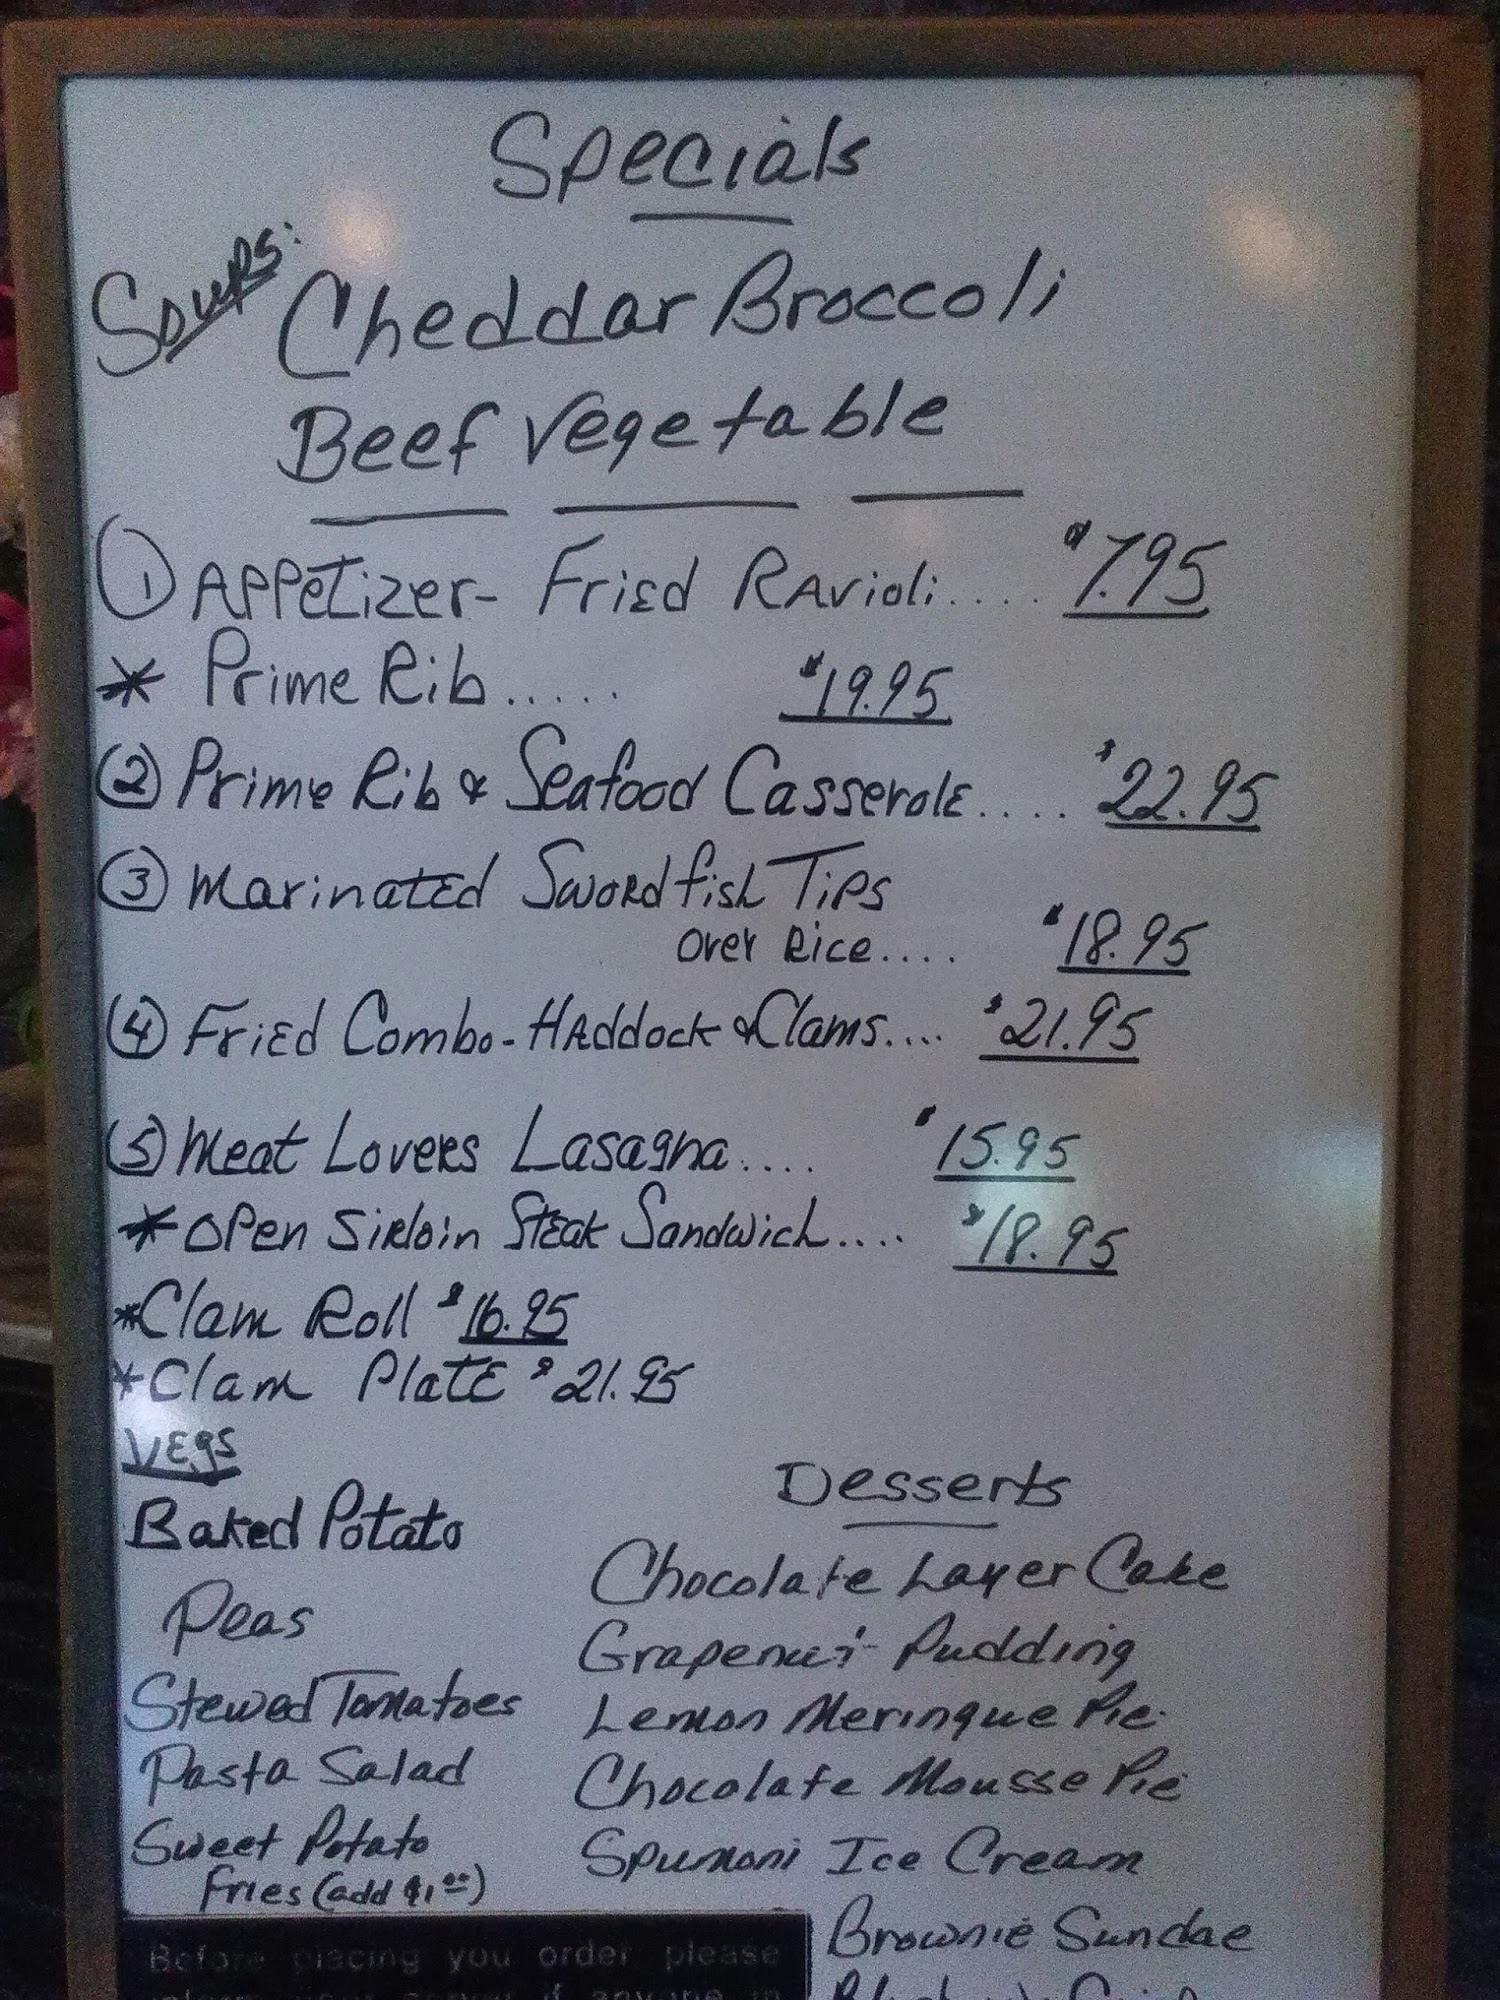 Specials
Soups: Cheddar Broccoli
Beef Vegetable
① Appetizer- Fried Ravioli.... $7.95
* Prime Rib..... $19.95
② Prime Rib & Seafood Casserole.... $22.95
③ Marinated Swordfish Tips
over Rice.... $18.95
④ Fried Combo-Haddock & Clams.... $21.95
⑤ Meat Lovers Lasagna.... $15.95
* Open Sirloin Steak Sandwich.... $18.95
* Clam Roll $16.95
* Clam Plate $21.95
Vegs
Baked Potato
Peas
Stewed Tomatoes
Pasta Salad
Sweet Potato
Fries (add $1.00)
Desserts
Chocolate Layer Cake
Grapenut Pudding
Lemon Meringue Pie
Chocolate Mousse Pie
Spumoni Ice Cream
Brownie Sundae
Before placing you order please
if anyone in